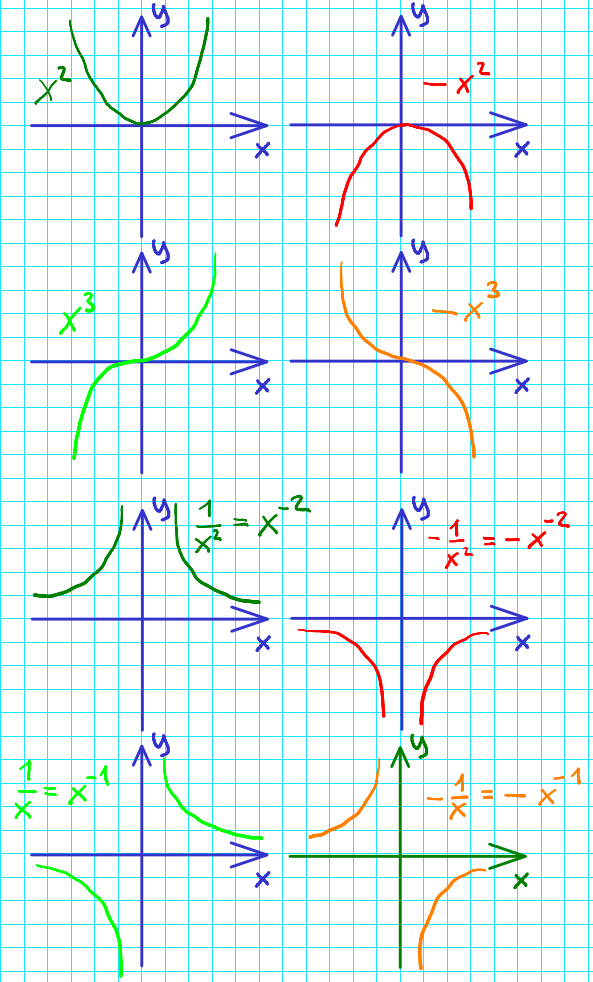 y
x²
x
y
-x²
x
y
x³
x
y
-x³
x
y
1/x² = x⁻²
x
y
-1/x² = -x⁻²
x
y
1/x = x⁻¹
x
y
-1/x = -x⁻¹
x